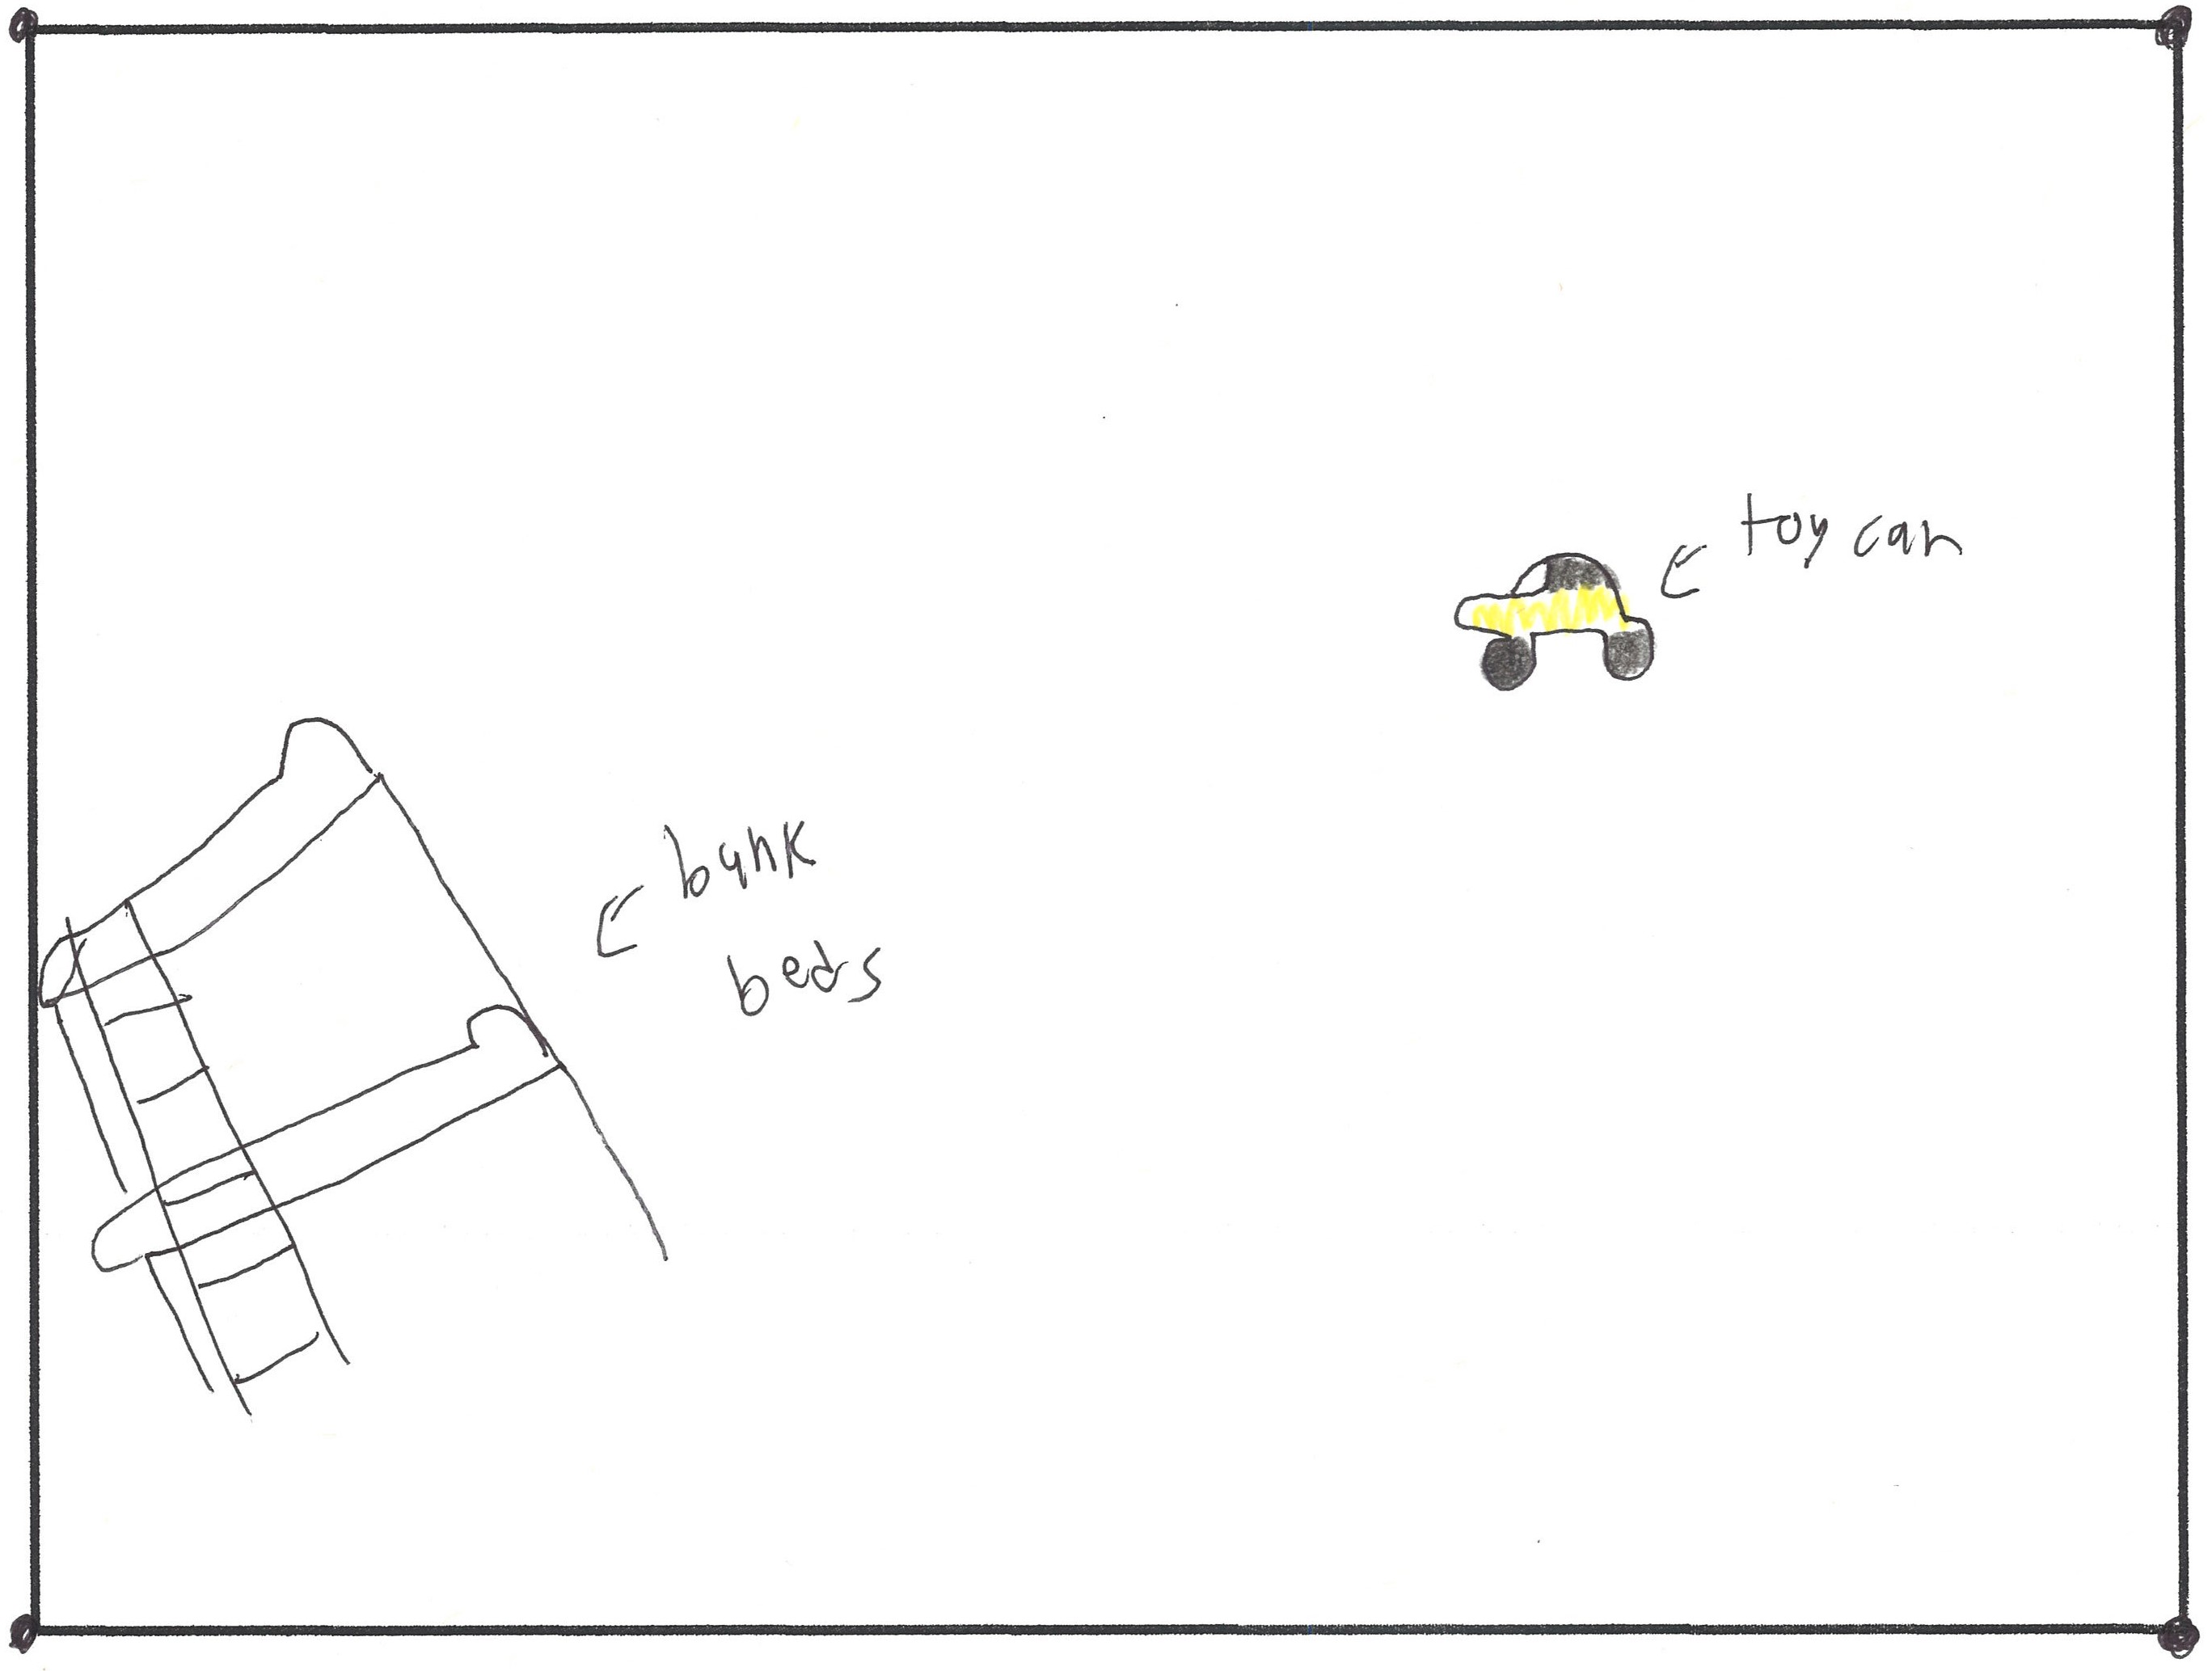 toy car
bunk
beds